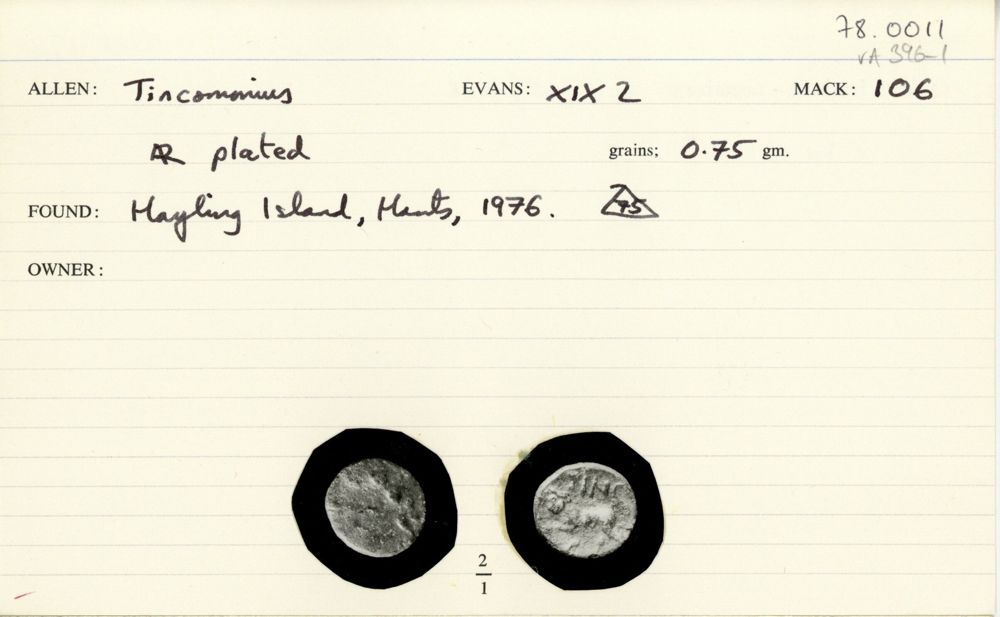 78.0011
VA 396-1
ALLEN: Tincommius EVANS: XIX 2 MACK: 106
AR plated grains; 0.75 gm.
FOUND: Hayling Island, Hants, 1976. 75
OWNER:
TINC
2
1